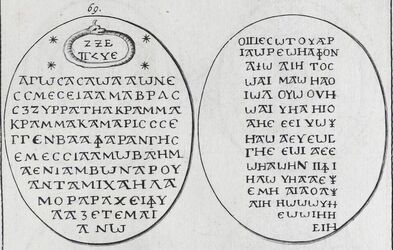 69.
ΖΖΕ
ΠΓΥΕ
ΑΓΓΩCΑCΑΩΑΑΩΝΕ
CCΜΕCΕΙΑΑΜΑΒΡΑC
CΖΖΥΡΡΑΤΗΑΚΡΑΜΜΑ
ΚΡΑΜΜΑΚΑΜΑΡΙCCCΕ
ΓΓΕΝΒΑΑΦΑΡΑΝΓΗC
ΕΜΕCCΙΑΑΜΩΒΑΗΜ
ΑΕΝΙΑΜΒΩΝΑΡΟΥ
ΑΝΤΑΜΙΧΑΗΑΑ
ΜΟΡΑΡΑΧΕΙΦΥ
ΑΑΖΕΤΕΜΑΙ
ΑΝΩ
ΟΠΙΕCΩΤΟΥΑΡ
ΙΑΩΡΕΩΗΑΦΟΝ
ΑΙΩ ΑΙΗ ΤΟC
ΩΑΙ ΜΑΩ ΗΑΟ
ΙΩΑ ΟΥΩ ΟΥΗ
ΩΑΙ ΥΗΑ ΗΙΟ
ΑΗΕ ΕΕΙ ΥΩΨ
ΗΑΩ ΑΕΥΕΩC
ΓΗΕ ΕΩΙ ΑΕΕ
ΩΗΑΩΗΝ ΠΦΙ
ΗΑΩ ΥΗΑΑΕΨ
ΕΜΗ ΑΙΑΟΑΨ
ΑΙΗ ΗΩΩΩΥΗ
ΕΩΩΙΗΗ
ΕΙΗ